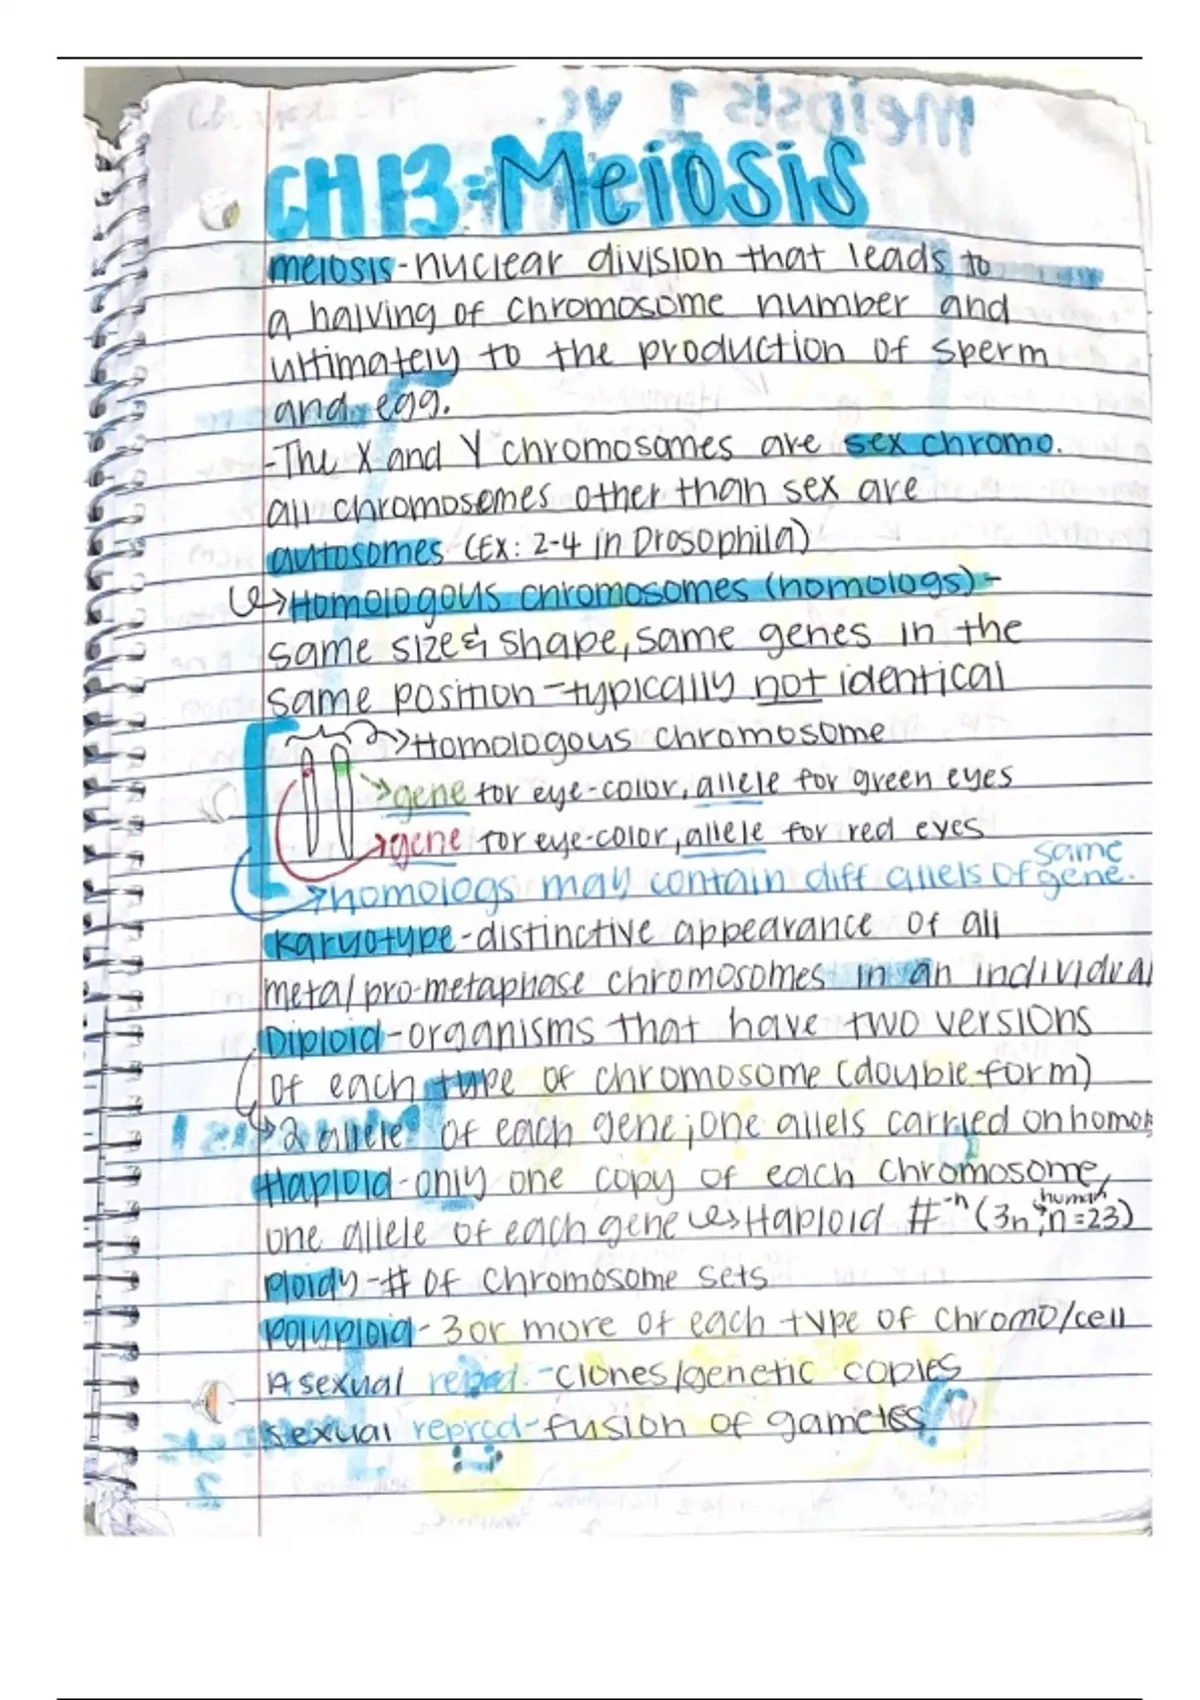 Meiosis 1 vs.
CH 13: Meiosis
meiosis - nuclear division that leads to
a halving of chromosome number and
ultimately to the production of sperm
and egg.
- The X and Y chromosomes are sex chromo.
all chromosemes other than sex are
autosomes (EX: 2-4 in Drosophila)
↳ Homologous chromosomes (homologs) -
same size & shape, same genes in the
same position - typically not identical
→ Homologous chromosome
→ gene for eye-color, allele for green eyes
→ gene for eye-color, allele for red eyes
→ homologs may contain diff allels of same gene.
Karyotype - distinctive appearance of all
meta/pro-metaphase chromosomes in an individual
Diploid - organisms that have two versions
of each type of chromosome (double-form)
→ 2 allele of each gene; one allels carried on homo
Haploid - only one copy of each chromosome,
one allele of each gene ↳ Haploid # -n (3n, human n=23)
Ploidy - # of chromosome sets
Polyploid - 3 or more of each type of chromo/cell
Asexual reprod. - clones/genetic copies
sexual reprod - fusion of gametes